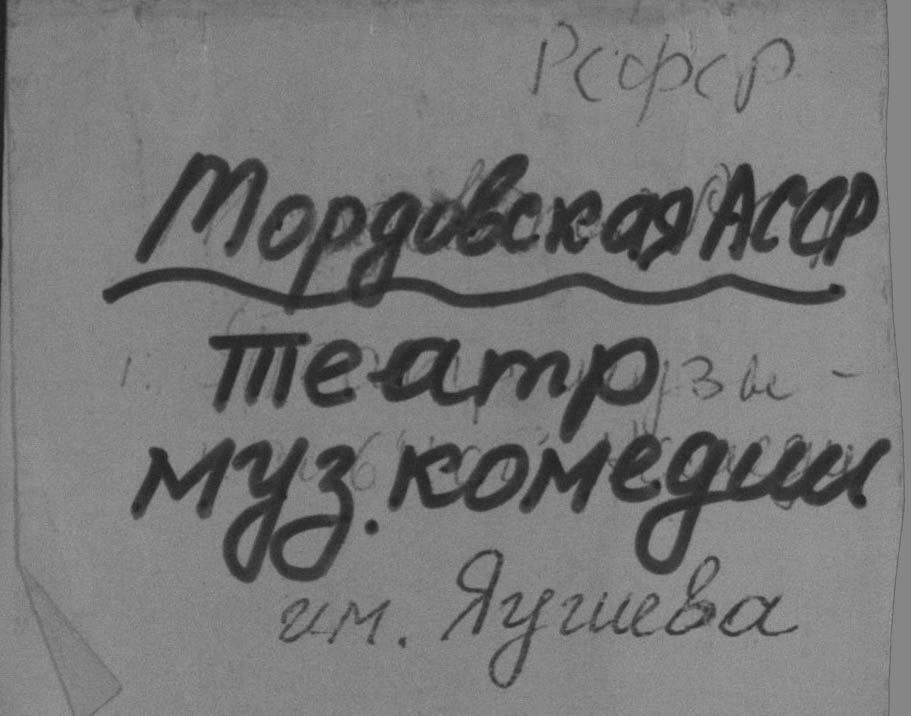 РСФСР
Мордовская АССР
театр
муз. комедии
им. Яушева